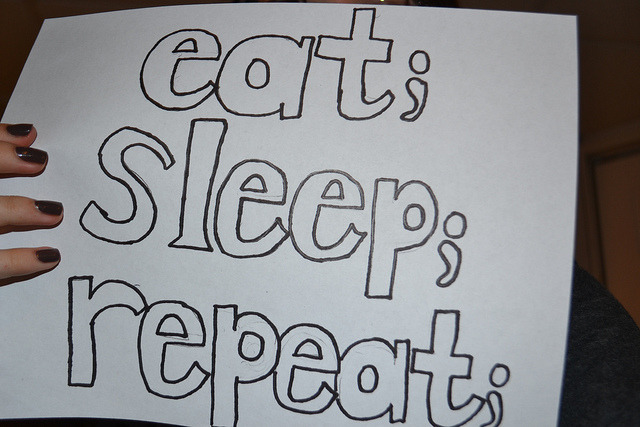 eat;
sleep;
repeat;